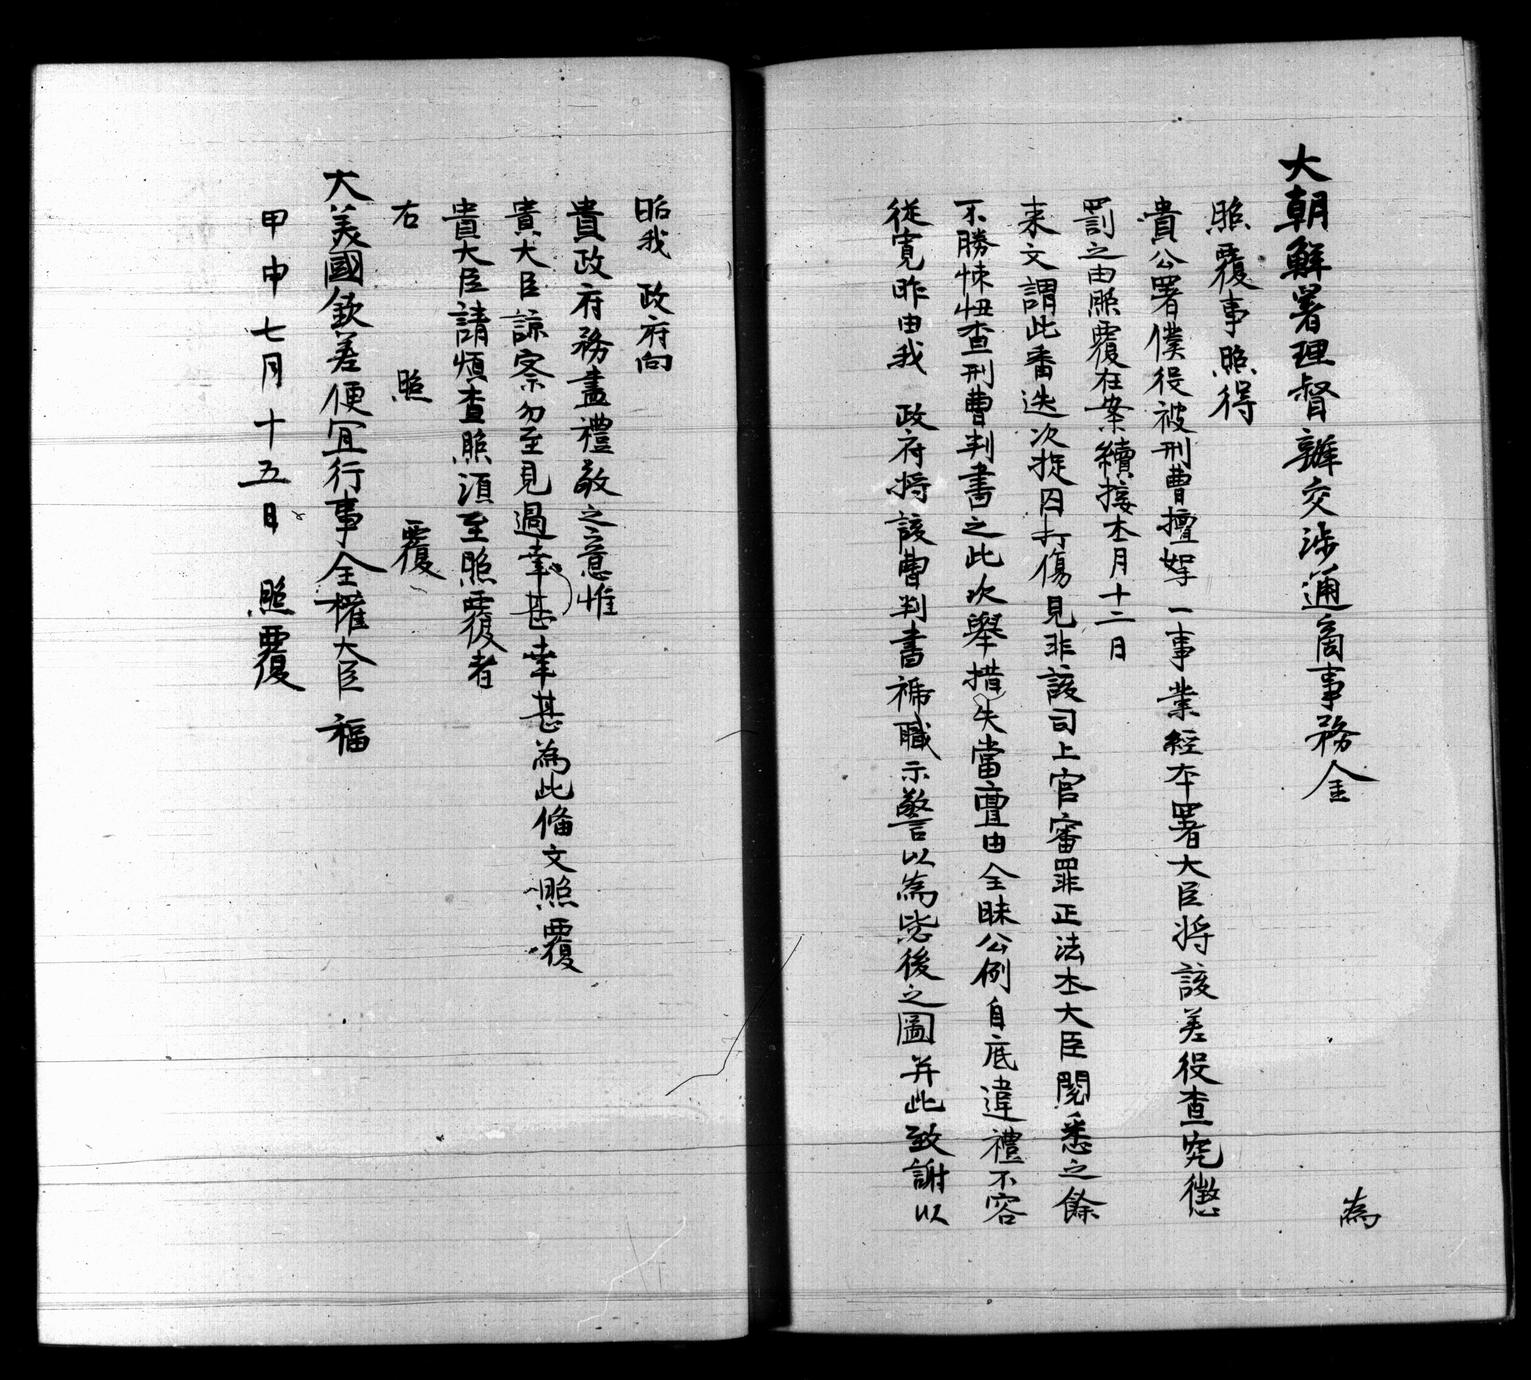 大朝鮮署理督辦交涉通商事務金
為
照覆事照得
貴公署僕役被刑曹擅拏一事業經本署大臣將該差役查究懲
罰之由照覆在案續接本月十二日
來文謂此番迭次捉囚打傷見非該司上官審罪正法本大臣閱悉之餘
不勝悚忸查刑曹判書之此次舉措失當亶由全昧公例自底違禮不容
從寬昨由我 政府將該曹判書褫職示警以為毖後之圖并此致謝以
昭我 政府向
貴政府務盡禮敬之意惟
貴大臣諒察勿至見過幸甚幸甚為此備文照覆
貴大臣請煩查照須至照覆者
右 照 覆
大美國欽差便宜行事全權大臣 福
甲申七月十五日 照覆